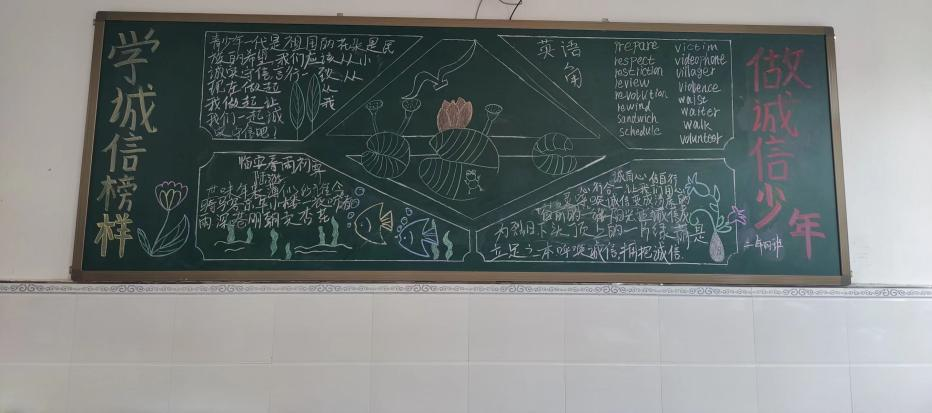 学诚信榜样
青少年一代是祖国的花朵是民
族的希望我们应该从小
诚实守信言行一致从
现在做起从
我做起让我
我们一起诚
实守信吧!
英语
角
prepare
respect
restriction
review
revolution
rewind
sandwich
schedule
victim
videophone
villager
violence
waist
waiter
walk
volunteer
临安春雨初霁
陆游
世味年来薄似纱谁令
骑马客京华小楼一夜听春
雨深巷明朝卖杏花
诚自心 信自行
心行合一让我们用心
灵呼唤诚信
为烈日下头顶上的一片绿荫是
立足之本呼唤诚信,拥抱诚信.
做诚信少年
二年四班